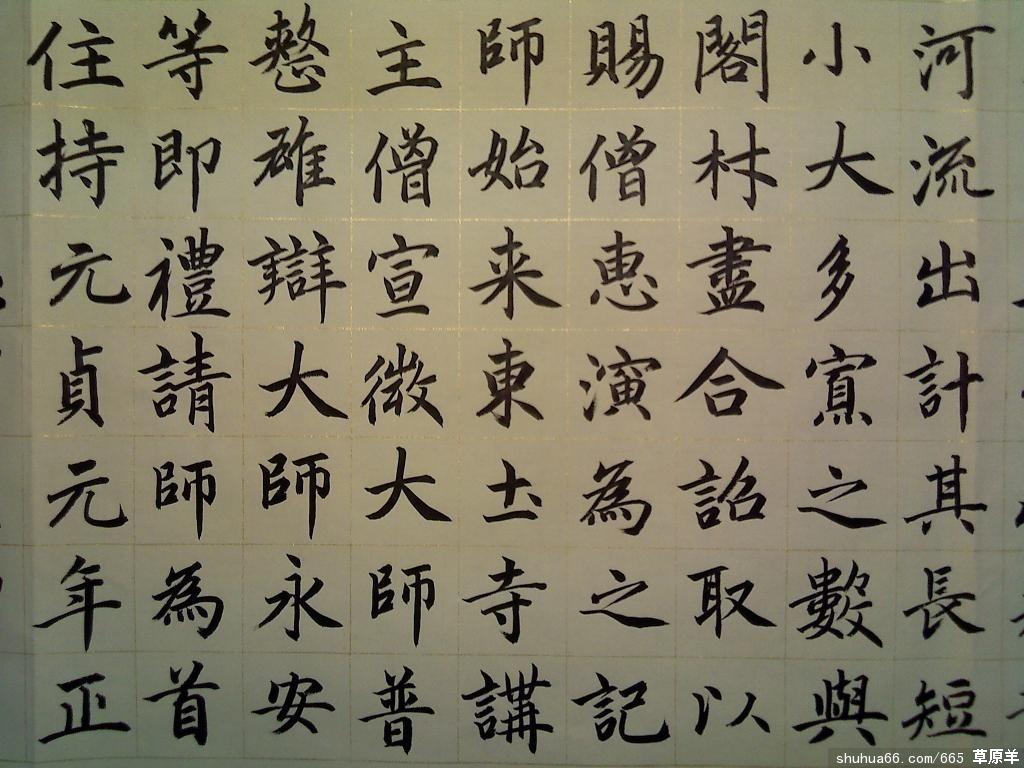 河流出計其長短
小大多寡之數與
閣村盡合詔取以
賜僧惠演為之記
師始来東土寺講
主僧宣微大師普
整雄辯大師永安
等即禮請師為首
住持元貞元年正
shuhua66.com/665 草原羊